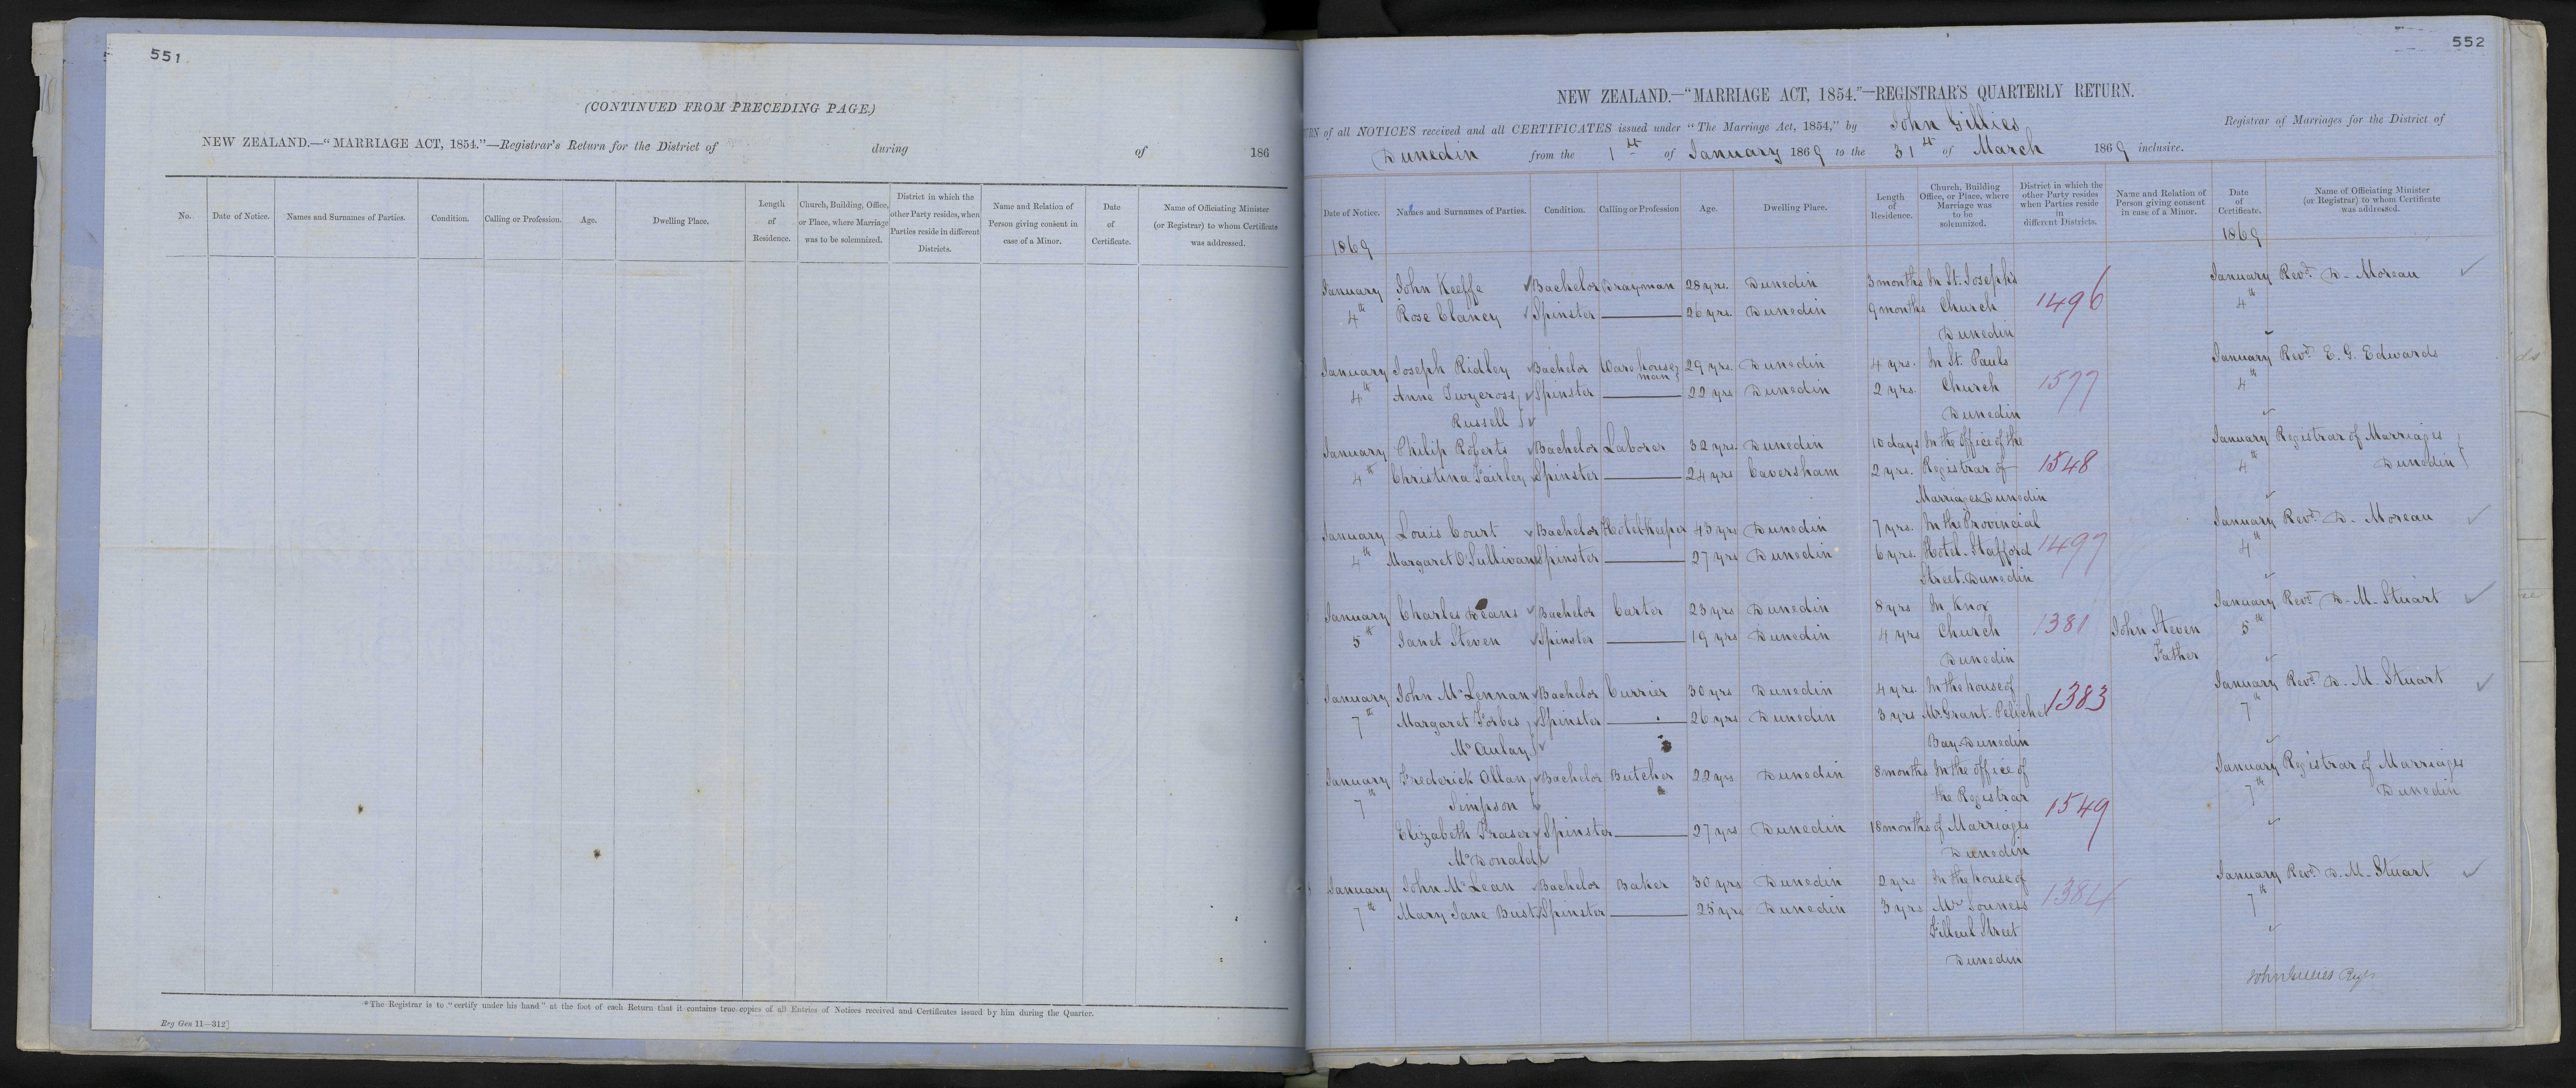 551
(CONTINUED FROM PRECEDING PAGE.)
NEW ZEALAND.—"MARRIAGE ACT, 1854."—Registrar's Return for the District of during of 186
No. Date of Notice. Names and Surnames of Parties. Condition. Calling or Profession. Age. Dwelling Place. Length of Residence. Church, Building, Office, or Place, where Marriage was to be solemnized. District in which the other Party resides, when Parties reside in different Districts. Name and Relation of Person giving consent in case of a Minor. Date of Certificate. Name of Officiating Minister (or Registrar) to whom Certificate was addressed.
*The Registrar is to "certify under his hand" at the foot of each Return that it contains true copies of all Entries of Notices received and Certificates issued by him during the Quarter.
Reg Gen 11—312]
552
NEW ZEALAND.—"MARRIAGE ACT, 1854."—REGISTRAR'S QUARTERLY RETURN.
URN of all NOTICES received and all CERTIFICATES issued under "The Marriage Act, 1854," by John Gillies Registrar of Marriages for the District of
Dunedin from the 1st of January 1869 to the 31st of March 1869 inclusive.
Date of Notice. Names and Surnames of Parties. Condition. Calling or Profession Age. Dwelling Place. Length of Residence. Church, Building Office, or Place, where Marriage was to be solemnized. District in which the other Party resides when Parties reside in different Districts. Name and Relation of Person giving consent in case of a Minor. Date of Certificate. Name of Officiating Minister (or Registrar) to whom Certificate was addressed.
1869 1869
January John Keeffe Bachelor Drayman 28 yrs. Dunedin 3 months In St. Joseph's January Revd. D. Moreau
4th Rose Clancy Spinster 26 yrs. Dunedin 9 months Church 1496 4th
Dunedin
January Joseph Ridley Bachelor Warehouse 29 yrs. Dunedin 4 yrs. In St. Pauls January Revd. E. G. Edwards
man
4th Anne Twycross Spinster 22 yrs Dunedin 2 yrs. Church 1577 4th
Russell Dunedin
January Philip Roberts Bachelor Laborer 32 yrs. Dunedin 10 days In the Office of the January Registrar of Marriages
4th Christina Fairley Spinster 24 yrs Caversham 2 yrs. Registrar of 1548 4th Dunedin
Marriages Dunedin
January Louis Court Bachelor Hotelkeeper 43 yrs Dunedin 7 yrs. In the Provincial January Revd. D. Moreau
4th Margaret O'Sullivan Spinster 27 yrs Dunedin 6 yrs. Hotel Stafford 1497 4th
Street Dunedin
January Charles Deans Bachelor Carter 23 yrs Dunedin 8 yrs In Knox January Revd. D. M. Stuart
5th Janet Steven Spinster 19 yrs Dunedin 4 yrs Church 1381 John Steven 5th
Dunedin Father
January John McLennan Bachelor Currier 30 yrs. Dunedin 4 yrs. In the house of January Revd. D. M. Stuart
7th Margaret Forbes Spinster 26 yrs Dunedin 3 yrs Mr. Grant. Pelichet 1383 7th
McAulay Bay Dunedin
January Frederick Allan Bachelor Butcher 22 yrs Dunedin 8 months In the office of January Registrar of Marriages
7th Simpson the Registrar 1549 7th Dunedin
Elizabeth Fraser Spinster 27 yrs Dunedin 18 months of Marriages
McDonald Dunedin
January John McLean Bachelor Baker 30 yrs Dunedin 2 yrs In the house of January Revd. D. M. Stuart
7th Mary Jane Bust Spinster 25 yrs Dunedin 3 yrs Mr Souness 1384 7th
Filleul Street
Dunedin
John Gillies Regr